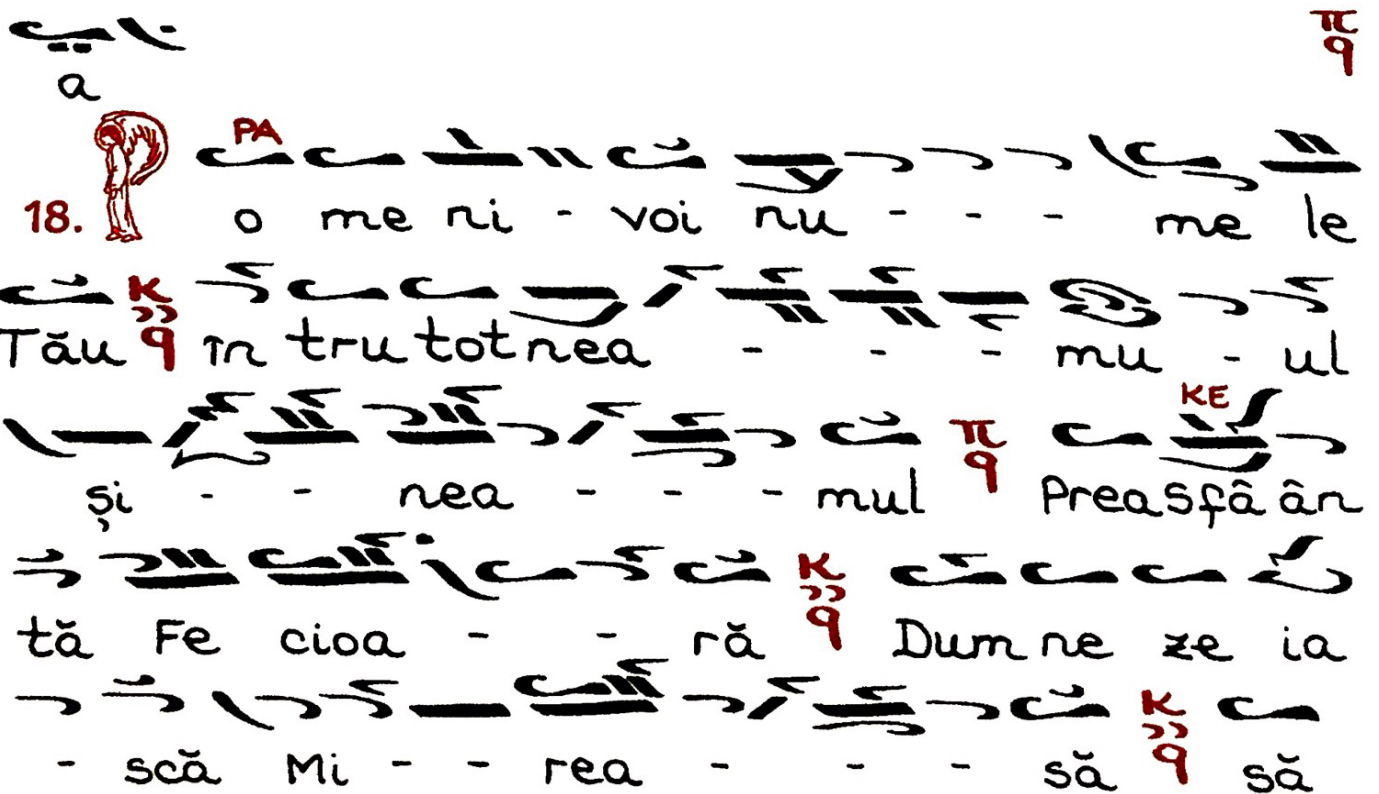 a π q
PA
18. o me ni - voi nu - - - me le
Tău K q în tru tot nea - - - mu - ul
KE
și - - nea - - - mul π q Prea Sfâ ân
tă Fe cioa - - ră K q Dum ne ze ia
- scă Mi - - rea - - - să K q să